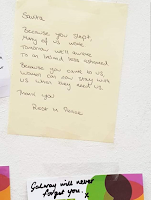 Savita
Because you slept,
Many of us woke.
Tomorrow we'll awake
To an Ireland less ashamed
Because you came to us,
Women can now stay with
us when they need us.
Thank you
Rest in Peace
Galway will never
forget you. x